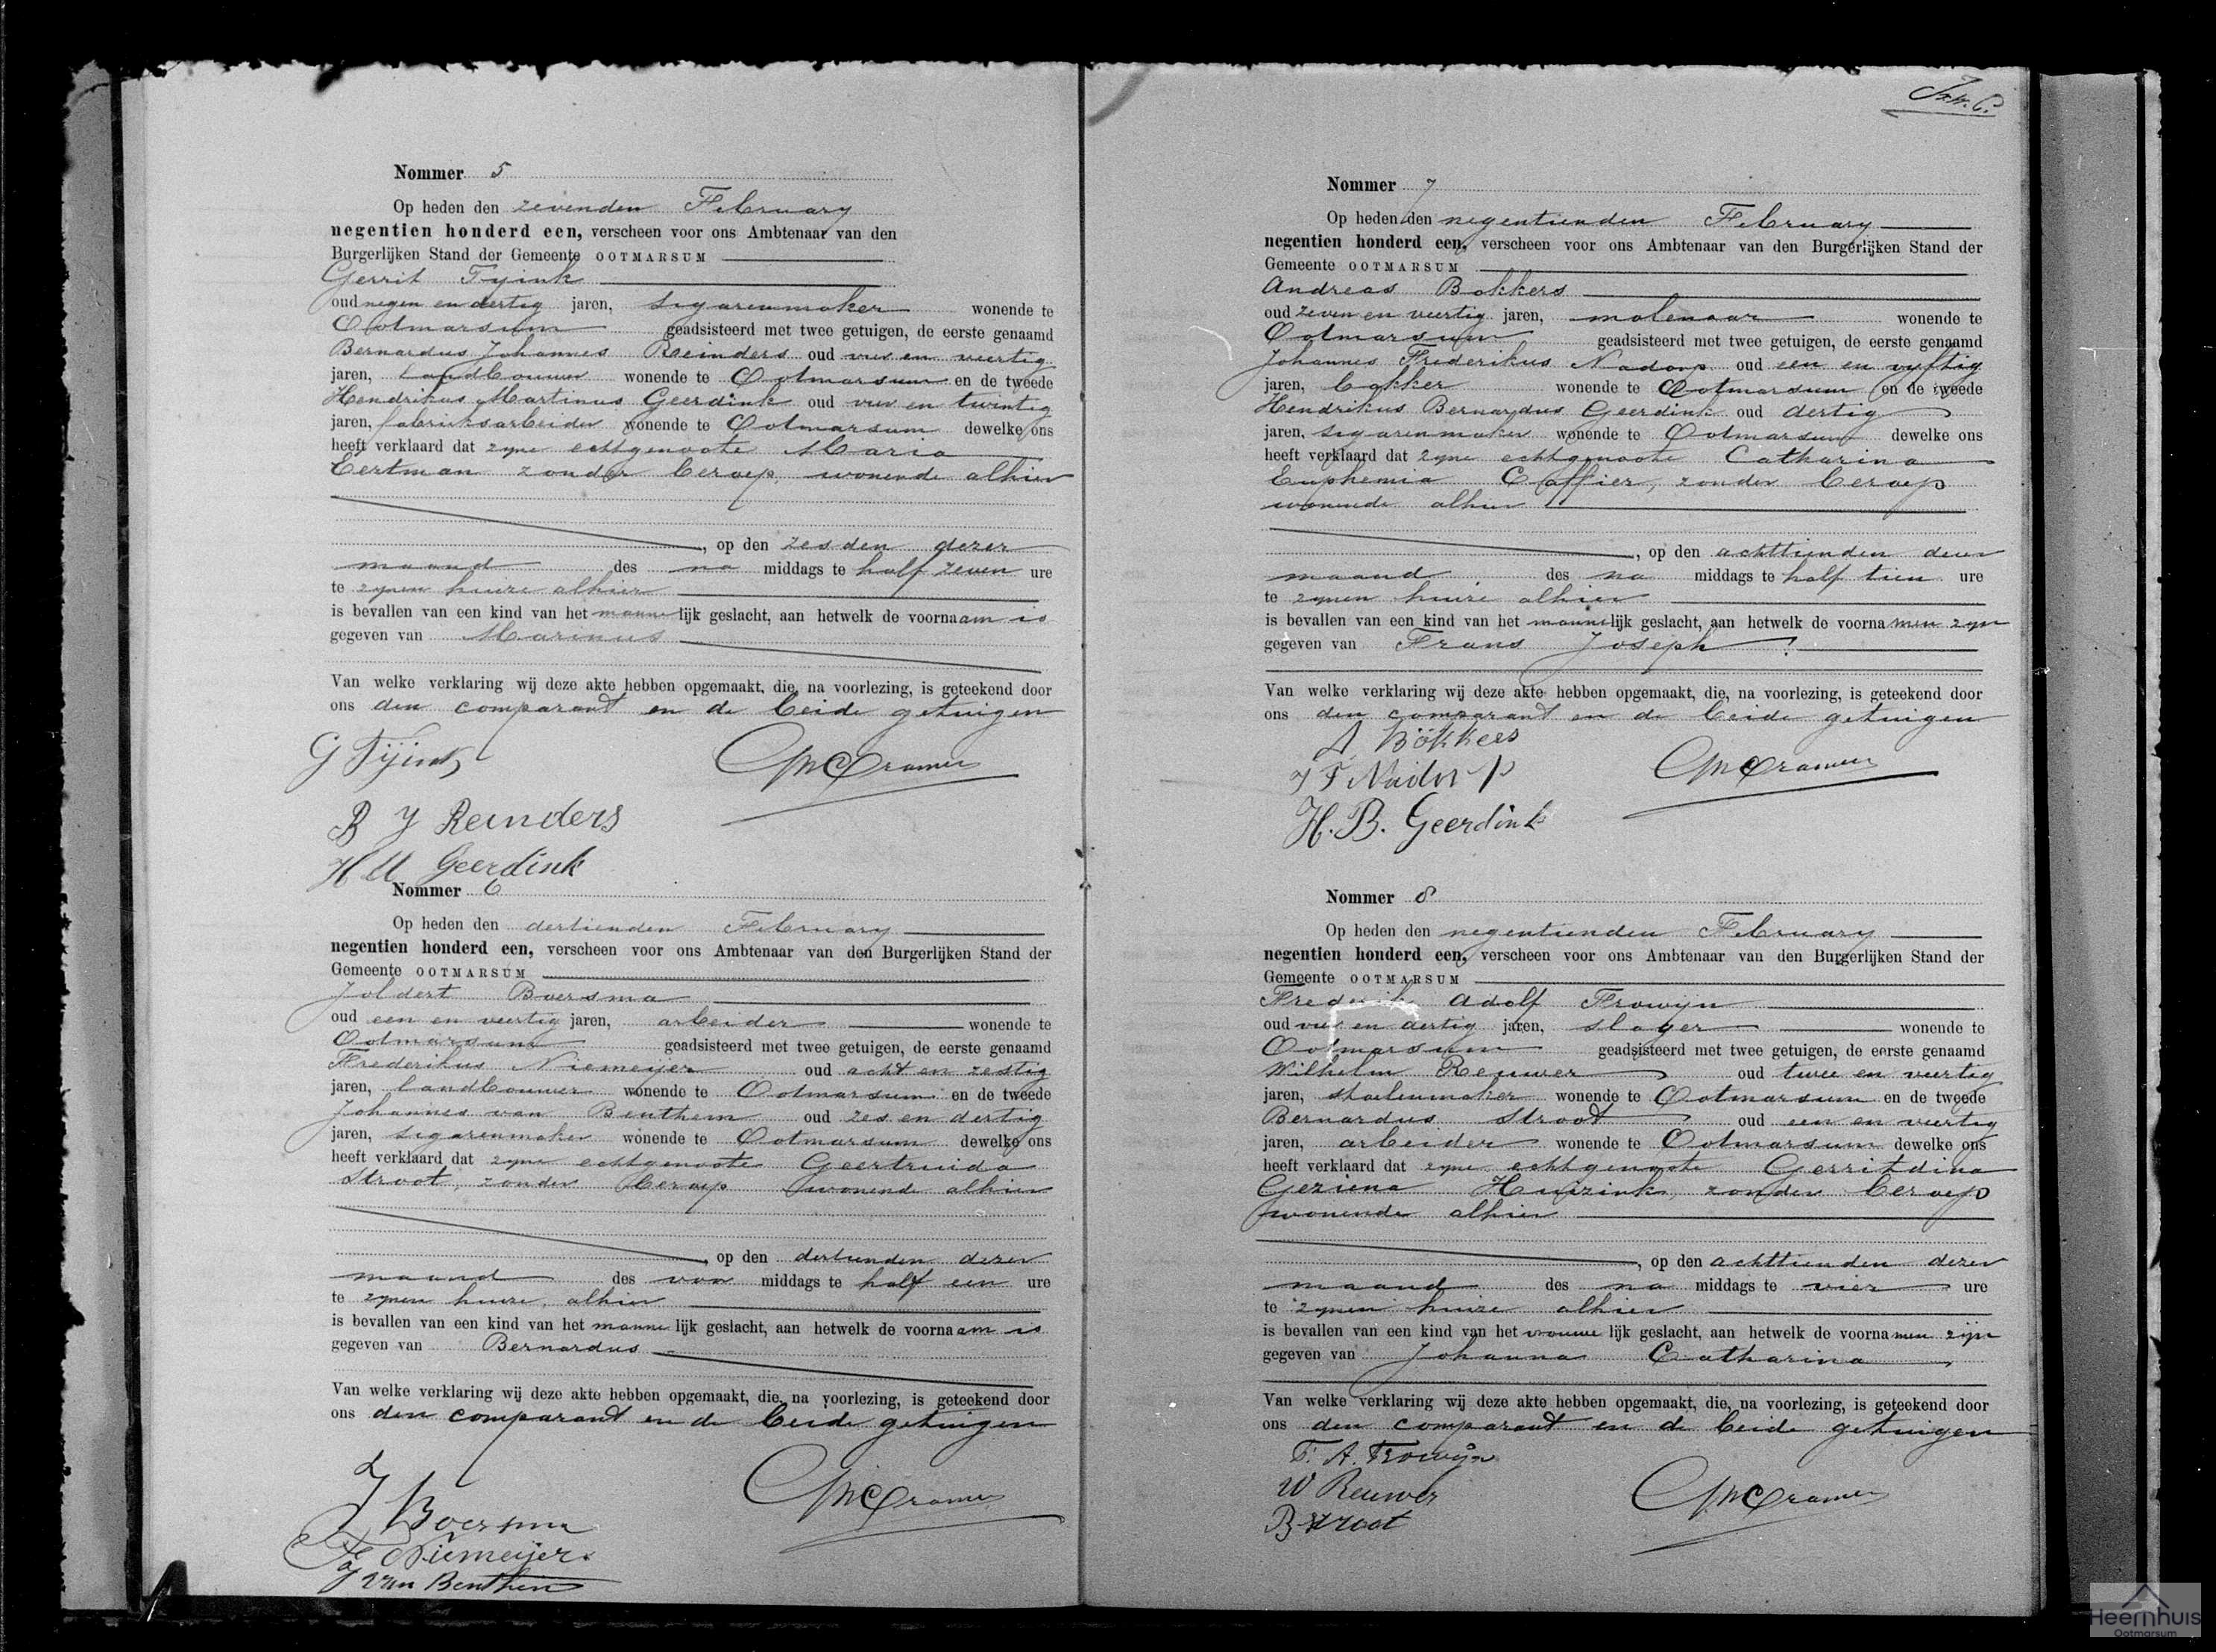 Nommer 5
Op heden den zevenden February
negentien honderd een, verscheen voor ons Ambtenaar van den
Burgerlijken Stand der Gemeente OOTMARSUM
Gerrit Tyink
oud negen en dertig jaren, sigarenmaker wonende te
Ootmarsum geadsisteerd met twee getuigen, de eerste genaamd
Bernardus Johannes Reinders oud vier en veertig
jaren, landbouwer wonende te Ootmarsum en de tweede
Hendrikus Martinus Geerdink oud vier en twintig
jaren, fabrieksarbeider wonende te Ootmarsum dewelke ons
heeft verklaard dat zyne echtgenoote Maria
Eertman zonder beroep, wonende alhier
, op den zesden dezer
maand des na middags te half zeven ure
te zynen huize alhier
is bevallen van een kind van het mannelijk geslacht, aan hetwelk de voornaam is
gegeven van Marinus
Van welke verklaring wij deze akte hebben opgemaakt, die, na voorlezing, is geteekend door
ons den comparant en de beide getuigen
G Tijink
Cramer
B J Reinders
H M Geerdink
Nommer 6
Op heden den dertienden February
negentien honderd een, verscheen voor ons Ambtenaar van den Burgerlijken Stand der
Gemeente OOTMARSUM
Joldert Boersma
oud een en veertig jaren, arbeider wonende te
Ootmarsum geadsisteerd met twee getuigen, de eerste genaamd
Frederikus Niemeijer oud acht en zestig
jaren, landbouwer wonende te Ootmarsum en de tweede
Johannes van Benthem oud zes en dertig
jaren, sigarenmaker wonende te Ootmarsum dewelke ons
heeft verklaard dat zyne echtgenoote Geertruida
Stroot, zonder beroep wonende alhier
, op den dertienden dezer
maand des voor middags te half een ure
te zynen huize, alhier
is bevallen van een kind van het mannelijk geslacht, aan hetwelk de voornaam is
gegeven van Bernardus
Van welke verklaring wij deze akte hebben opgemaakt, die, na voorlezing, is geteekend door
ons den comparant en de beide getuigen
J Boersma
Cramer
Fr Niemeijer
J van Benthem
Nommer 7
Op heden den negentienden February
negentien honderd een, verscheen voor ons Ambtenaar van den Burgerlijken Stand der
Gemeente OOTMARSUM
Andreas Bokkers
oud zeven en veertig jaren, molenaar wonende te
Ootmarsum geadsisteerd met twee getuigen, de eerste genaamd
Johannes Frederikus Nadorp oud een en vyftig
jaren, bakker wonende te Ootmarsum en de tweede
Hendrikus Bernardus Geerdink oud dertig
jaren, sigarenmaker wonende te Ootmarsum dewelke ons
heeft verklaard dat zyne echtgenoote Catharina
Euphemia Caffier, zonder beroep
wonende alhier
, op den achttienden dezer
maand des na middags te half tien ure
te zynen huize alhier
is bevallen van een kind van het mannelijk geslacht, aan hetwelk de voornamen zyn
gegeven van Frans Joseph
Van welke verklaring wij deze akte hebben opgemaakt, die, na voorlezing, is geteekend door
ons den comparant en de beide getuigen
A Bökkers
Cramer
J F Nadorp
H. B. Geerdink
Nommer 8
Op heden den negentienden February
negentien honderd een, verscheen voor ons Ambtenaar van den Burgerlijken Stand der
Gemeente OOTMARSUM
Frederik Adolf Frowijn
oud vier en dertig jaren, slager wonende te
Ootmarsum geadsisteerd met twee getuigen, de eerste genaamd
Wilhelm Reuwer oud twee en veertig
jaren, stoelenmaker wonende te Ootmarsum en de tweede
Bernardus Stroot oud een en veertig
jaren, arbeider wonende te Ootmarsum dewelke ons
heeft verklaard dat zyne echtgenoote Gerritdina
Geziena Huizink, zonder beroep
wonende alhier
, op den achttienden dezer
maand des na middags te vier ure
te zynen huize alhier
is bevallen van een kind van het vrouwelijk geslacht, aan hetwelk de voornamen zijn
gegeven van Johanna Catharina
Van welke verklaring wij deze akte hebben opgemaakt, die, na voorlezing, is geteekend door
ons den comparant en de beide getuigen
F. A. Frowijn
W Reuwer
Cramer
B Stroot
Heernhuis
Ootmarsum